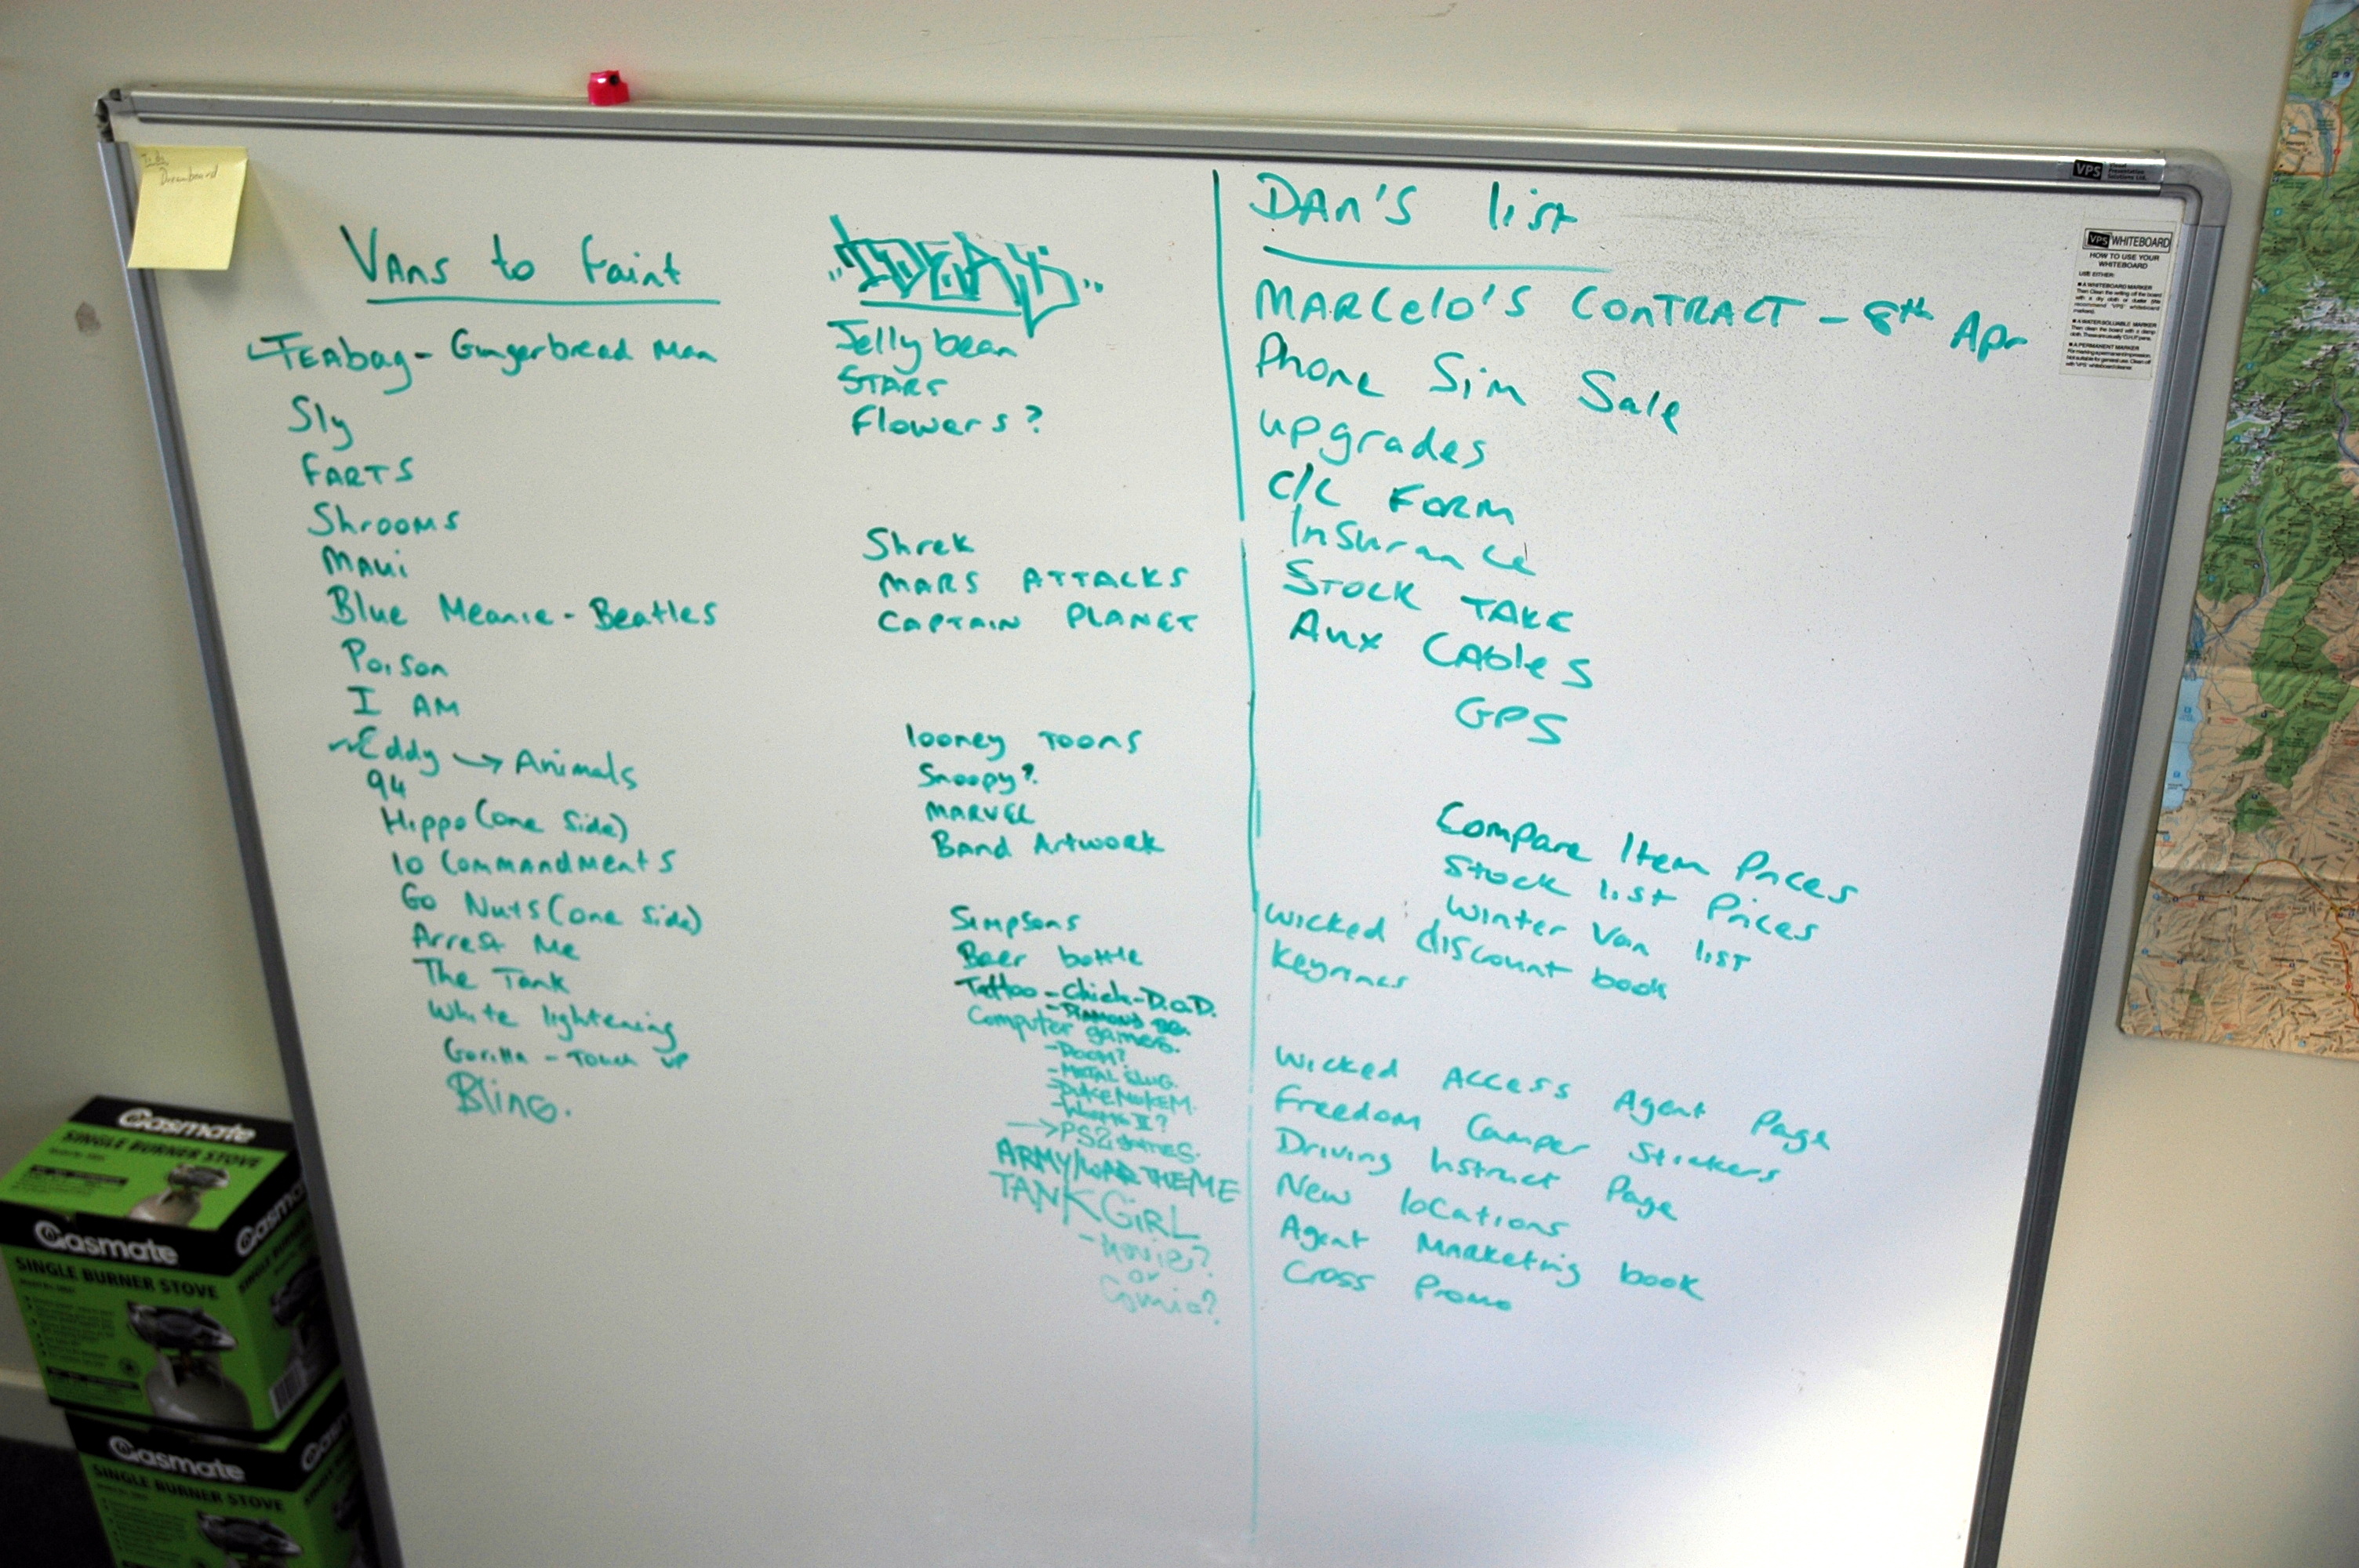 To do
Dreamboard
VANS to Paint
TEAbag - Gingerbread Man
Sly
FARTS
Shrooms
MAui
Blue Meanie - Beatles
Poison
I AM
Eddy → Animals
94
Hippo (one Side)
10 Commandments
Go Nuts (one Side)
Arrest Me
The Tank
White lightening
Gorilla - Touch up
Bling.
"IDEAS"
Jelly bean
STARS
Flowers?
Shrek
MARS ATTACKS
CAPTAIN PLANET
looney Toons
Snoopy?
MARVEL
Band Artwork
Simpsons
Beer bottle
Tattoo - Chick - D.O.D.
Computer gamers.
- DOOM?
- METAL SLUG.
- DUKE NUKEM.
- WORMS II?
→ PS2 GAMES.
ARMY/WAR THEME
TANK GIRL
- Movie?
or
Comic?
DAn'S list
MARCelo'S CONTRACT - 8th Apr
Phone Sim Sale
upgrades
C/L FORM
Insurance
STOCK TAKE
Aux CAbleS
GPS
Compare Item Prices
Stock list Prices
Winter Van list
Wicked discount book
Keyrings
Wicked Access Agent Page
Freedom Camper Stickers
Driving Instruct Page
New locations
Agent Marketing book
Cross Promo
VPS
VPS WHITEBOARD
HOW TO USE YOUR
WHITEBOARD
USE EITHER:
A WHITEBOARD MARKER
A WATER SOLUBLE MARKER
A PERMANENT MARKER
Gasmate
SINGLE BURNER STOVE
Gasmate
SINGLE BURNER STOVE
Gasmate
SINGLE BURNER STOVE